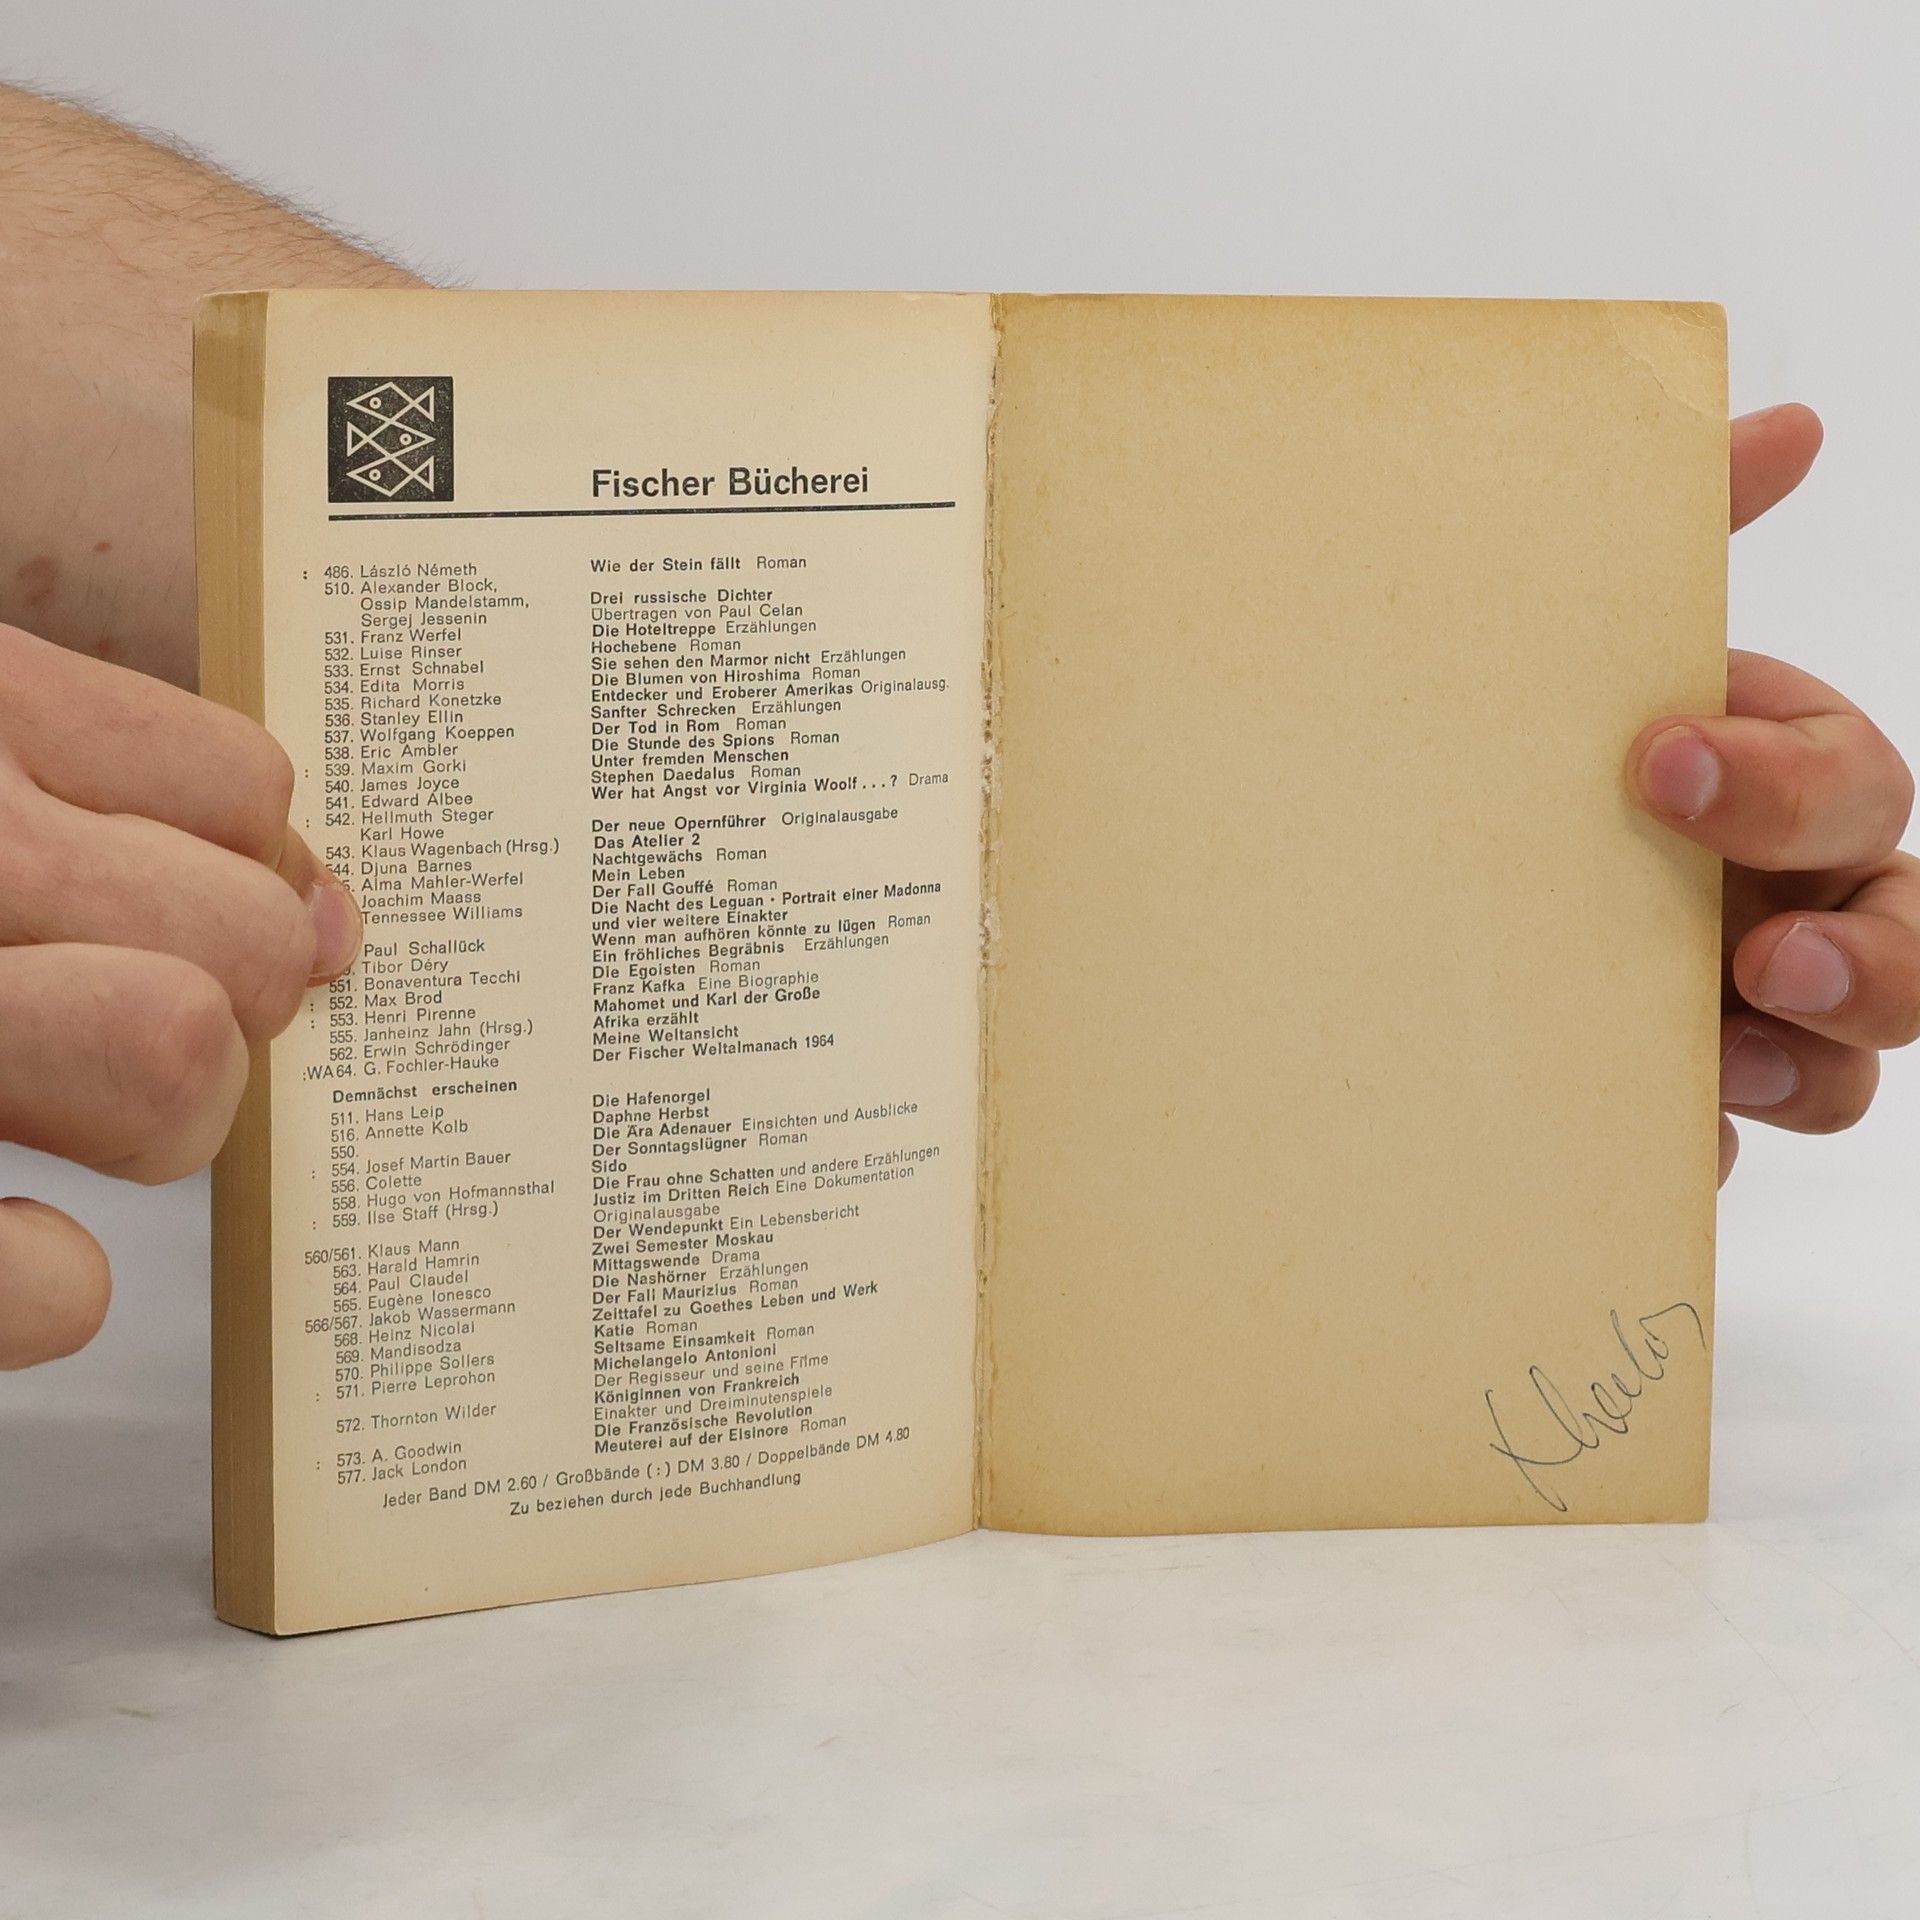 Fischer Bücherei
: 486. László Németh Wie der Stein fällt Roman
510. Alexander Block,
Ossip Mandelstamm, Drei russische Dichter
Sergej Jessenin Übertragen von Paul Celan
531. Franz Werfel Die Hoteltreppe Erzählungen
532. Luise Rinser Hochebene Roman
533. Ernst Schnabel Sie sehen den Marmor nicht Erzählungen
534. Edita Morris Die Blumen von Hiroshima Roman
535. Richard Konetzke Entdecker und Eroberer Amerikas Originalausg.
536. Stanley Ellin Sanfter Schrecken Erzählungen
537. Wolfgang Koeppen Der Tod in Rom Roman
538. Eric Ambler Die Stunde des Spions Roman
: 539. Maxim Gorki Unter fremden Menschen
540. James Joyce Stephen Daedalus Roman
541. Edward Albee Wer hat Angst vor Virginia Woolf...? Drama
: 542. Hellmuth Steger
Karl Howe Der neue Opernführer Originalausgabe
543. Klaus Wagenbach (Hrsg.) Das Atelier 2
544. Djuna Barnes Nachtgewächs Roman
5. Alma Mahler-Werfel Mein Leben
Joachim Maass Der Fall Gouffé Roman
Tennessee Williams Die Nacht des Leguan · Portrait einer Madonna
und vier weitere Einakter
Paul Schallück Wenn man aufhören könnte zu lügen Roman
Tibor Déry Ein fröhliches Begräbnis Erzählungen
551. Bonaventura Tecchi Die Egoisten Roman
: 552. Max Brod Franz Kafka Eine Biographie
: 553. Henri Pirenne Mahomet und Karl der Große
555. Janheinz Jahn (Hrsg.) Afrika erzählt
562. Erwin Schrödinger Meine Weltansicht
:WA 64. G. Fochler-Hauke Der Fischer Weltalmanach 1964
Demnächst erscheinen
511. Hans Leip Die Hafenorgel
516. Annette Kolb Daphne Herbst
550. Die Ära Adenauer Einsichten und Ausblicke
: 554. Josef Martin Bauer Der Sonntagslügner Roman
556. Colette Sido
558. Hugo von Hofmannsthal Die Frau ohne Schatten und andere Erzählungen
: 559. Ilse Staff (Hrsg.) Justiz im Dritten Reich Eine Dokumentation
Originalausgabe
560/561. Klaus Mann Der Wendepunkt Ein Lebensbericht
563. Harald Hamrin Zwei Semester Moskau
564. Paul Claudel Mittagswende Drama
565. Eugène Ionesco Die Nashörner Erzählungen
566/567. Jakob Wassermann Der Fall Maurizius Roman
568. Heinz Nicolai Zeittafel zu Goethes Leben und Werk
569. Mandisodza Katie Roman
570. Philippe Sollers Seltsame Einsamkeit Roman
: 571. Pierre Leprohon Michelangelo Antonioni
Der Regisseur und seine Filme
572. Thornton Wilder Königinnen von Frankreich
Einakter und Dreiminutenspiele
: 573. A. Goodwin Die Französische Revolution
577. Jack London Meuterei auf der Elsinore Roman
Jeder Band DM 2.60 / Großbände (:) DM 3.80 / Doppelbände DM 4.80
Zu beziehen durch jede Buchhandlung